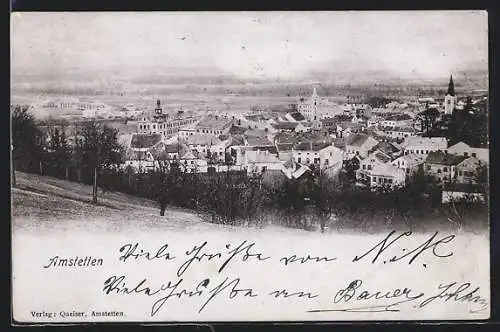 Amstetten
Viele Grüße von N. N.
Viele Grüße an Bauer
Verlag: Queiser, Amstetten.